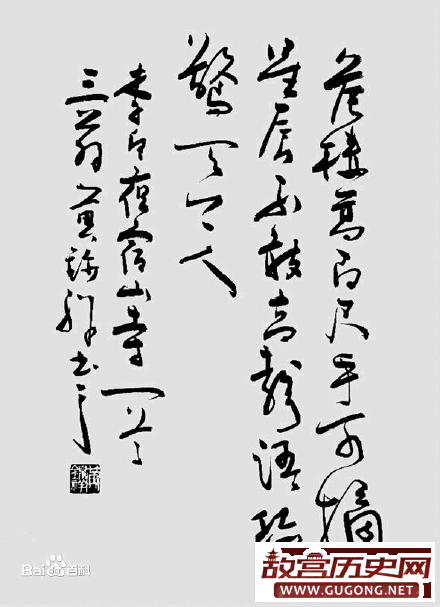 危樓高百尺手可摘
星辰不敢高聲語恐
驚天上人
李白夜宿山寺一首
黄書
Bai百科
故宫历史网
WWW.GUGONG.NET